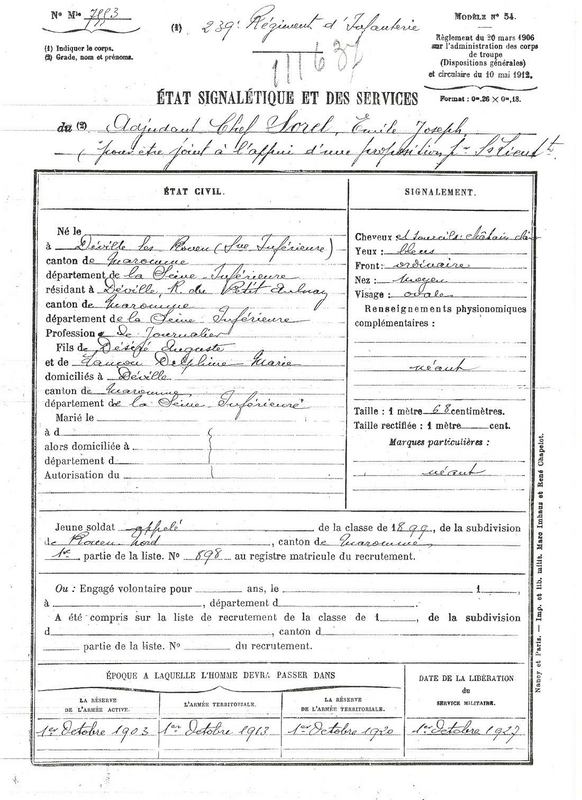 No Mle 7553
(1) 239e Régiment d'Infanterie
MODÈLE No 54.
(1) Indiquer le corps.
(2) Grade, nom et prénoms.
Règlement du 20 mars 1906
sur l'administration des corps
de troupe
(Dispositions générales)
et circulaire du 10 mai 1912.
Format : 0m,26 × 0m,18.
111637
ÉTAT SIGNALÉTIQUE ET DES SERVICES
du (2) Adjudant Chef Sorel, Emile Joseph
(pour être joint à l'appui d'une proposition pr Ss Lieutt
ÉTAT CIVIL.
Né le
à Déville les Rouen (Sne Inférieure)
canton de Maromme
département de la Seine Inférieure
résidant à Déville, R. du Petit Aulnay
canton de Maromme
département de la Seine Inférieure
Profession de Journalier
Fils de Désiré Auguste
et de Delphine Marie
domiciliés à Déville
canton de Maromme
département de la Seine Inférieure
Marié le
à d
alors domiciliée à
département d
Autorisation du
SIGNALEMENT.
Cheveux et sourcils : châtain
Yeux : bleus
Front : ordinaire
Nez : moyen
Visage : ovale
Renseignements physionomiques
complémentaires :
néant
Taille : 1 mètre 68 centimètres.
Taille rectifiée : 1 mètre cent.
Marques particulières :
néant
Jeune soldat appelé de la classe de 1899, de la subdivision
de Rouen Nord, canton de Maromme
1re partie de la liste. No 898 au registre matricule du recrutement.
Ou : Engagé volontaire pour ans, le 1 ,
à , département d .
A été compris sur la liste de recrutement de la classe de 1 , de la subdivision
d , canton d
partie de la liste. No du recrutement.
ÉPOQUE A LAQUELLE L'HOMME DEVRA PASSER DANS
DATE DE LA LIBÉRATION
du
SERVICE MILITAIRE.
LA RÉSERVE
DE L'ARMÉE ACTIVE.
L'ARMÉE TERRITORIALE.
LA RÉSERVE
DE L'ARMÉE TERRITORIALE.
1er Octobre 1903
1er Octobre 1913
1er Octobre 1920
1er Octobre 1927
Nancy et Paris. — Imp. et lib. milit. Marc Imhaus et René Chapelot.